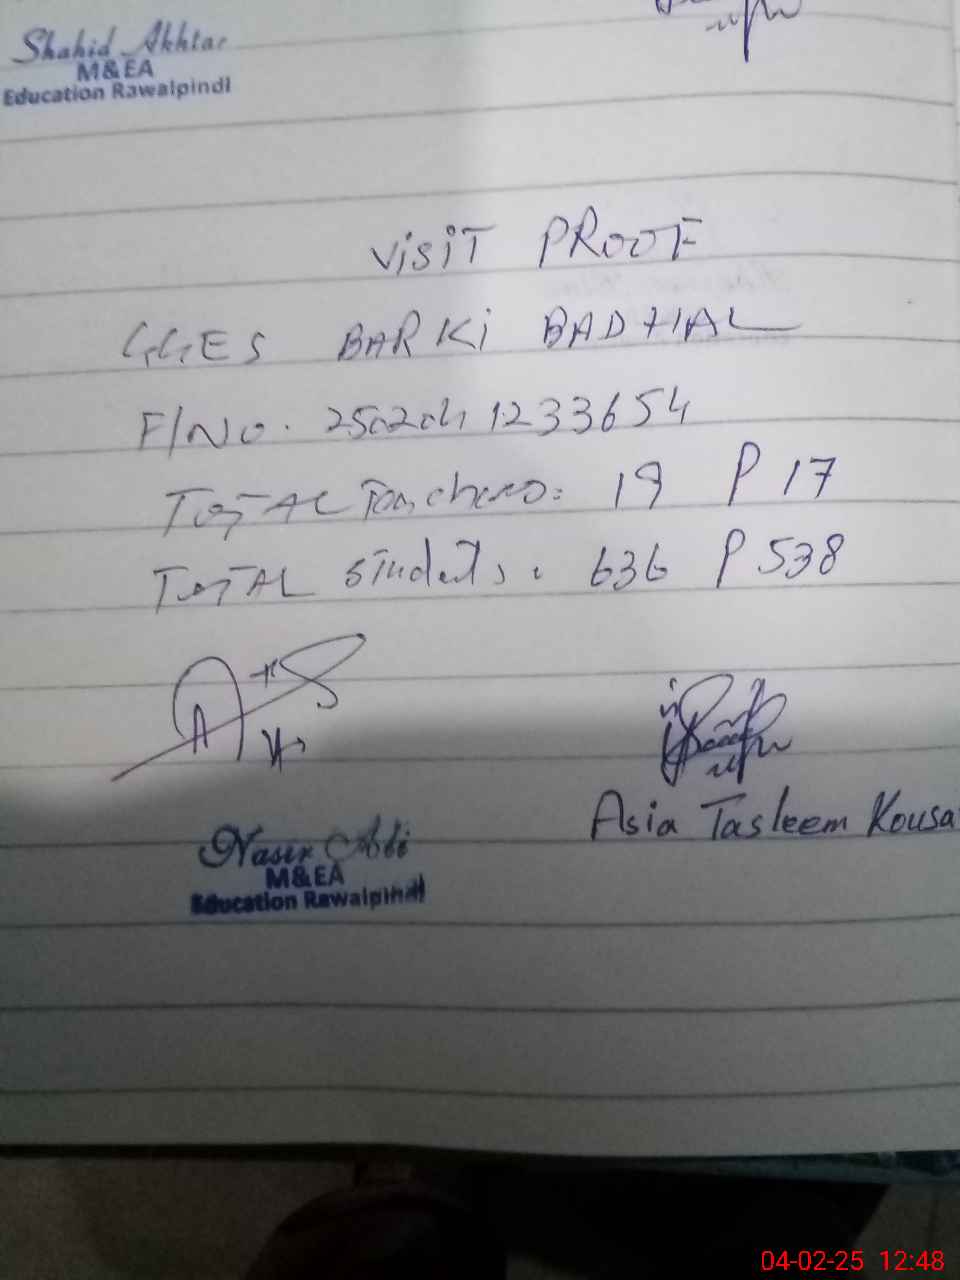 Shahid Akhtar
M&EA
Education Rawalpindi
VISIT PROOF
GGES BARKI BADHAL
F/No. 250204 1233654
TOTAL Teachers: 19 P 17
TOTAL students: 636 P 538
Asia Tasleem Kousa
Nasir Abi
M&EA
Education Rawalpindi
04-02-25 12:48